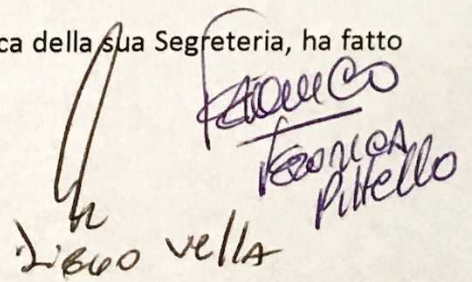 ca della sua Segreteria, ha fatto
Veronica
Pitello
Diego Vella